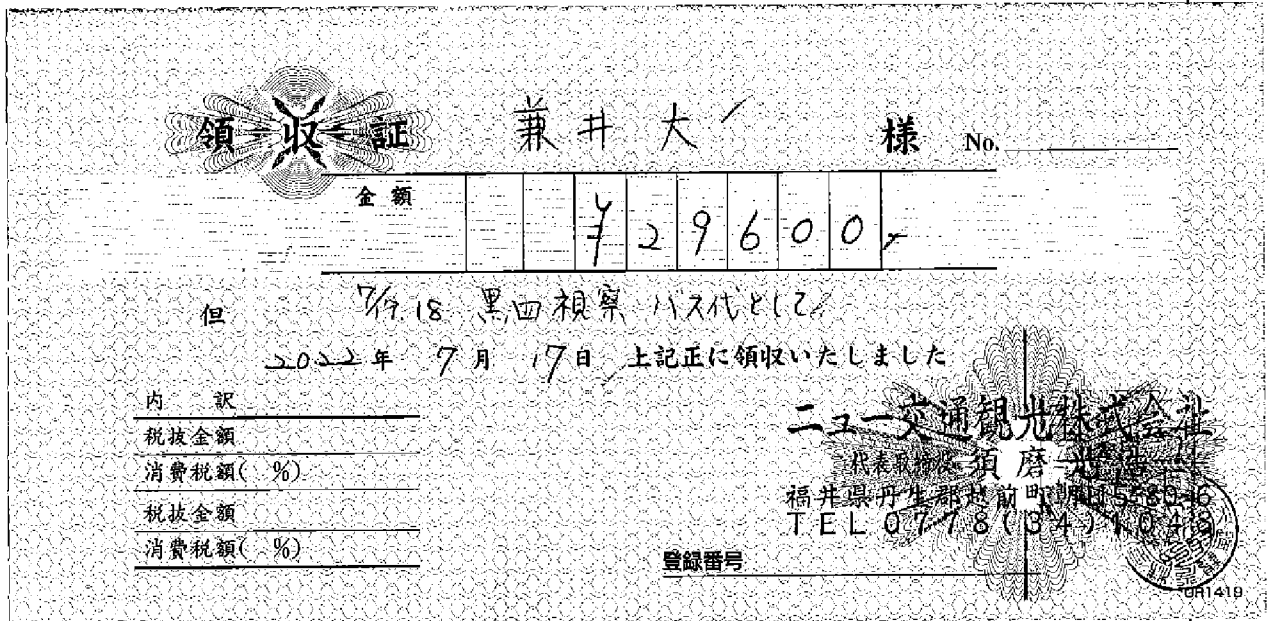 領収証 兼井 大 様 No.
金額 ¥29600
但 7/17.18 黒四視察 バス代として
2022年 7月 17日 上記正に領収いたしました
内 訳
税抜金額
消費税額( %)
税抜金額
消費税額( %)
ニュー交通観光株式会社
代表取締役 須磨
福井県丹生郡越前町
TEL 0778(34)
登録番号